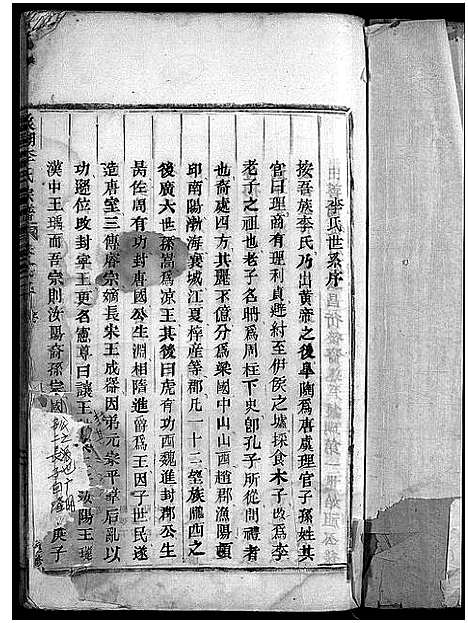 李氏世系序
按吾族李氏乃出黃帝之後臯陶爲唐虞理官子孫姓其
官曰理商有理利貞避紂至伊侯之墟採食木子改爲李
老子之祖也老子名聃爲周柱下史卽孔子所從問禮者
也裔處四方其麗不億分爲梁國中山山西趙郡漁陽頓
邱南陽渤海襄城江夏梓産等郡凡一十三望族隴西之
後廣六世孫暠爲凉王其後曰虎有功西魏進封郡公生
昺佐周有功封唐國公生淵相隋進爵爲王因子世民遂
造唐室三傳睿宗嫡長宋王成器因弟元宗平韋后亂以
功遜位改封寧王更名憲尊曰讓王 汝陽王璡
漢中王瑀而吾宗則汝陽裔孫宗國 庚子